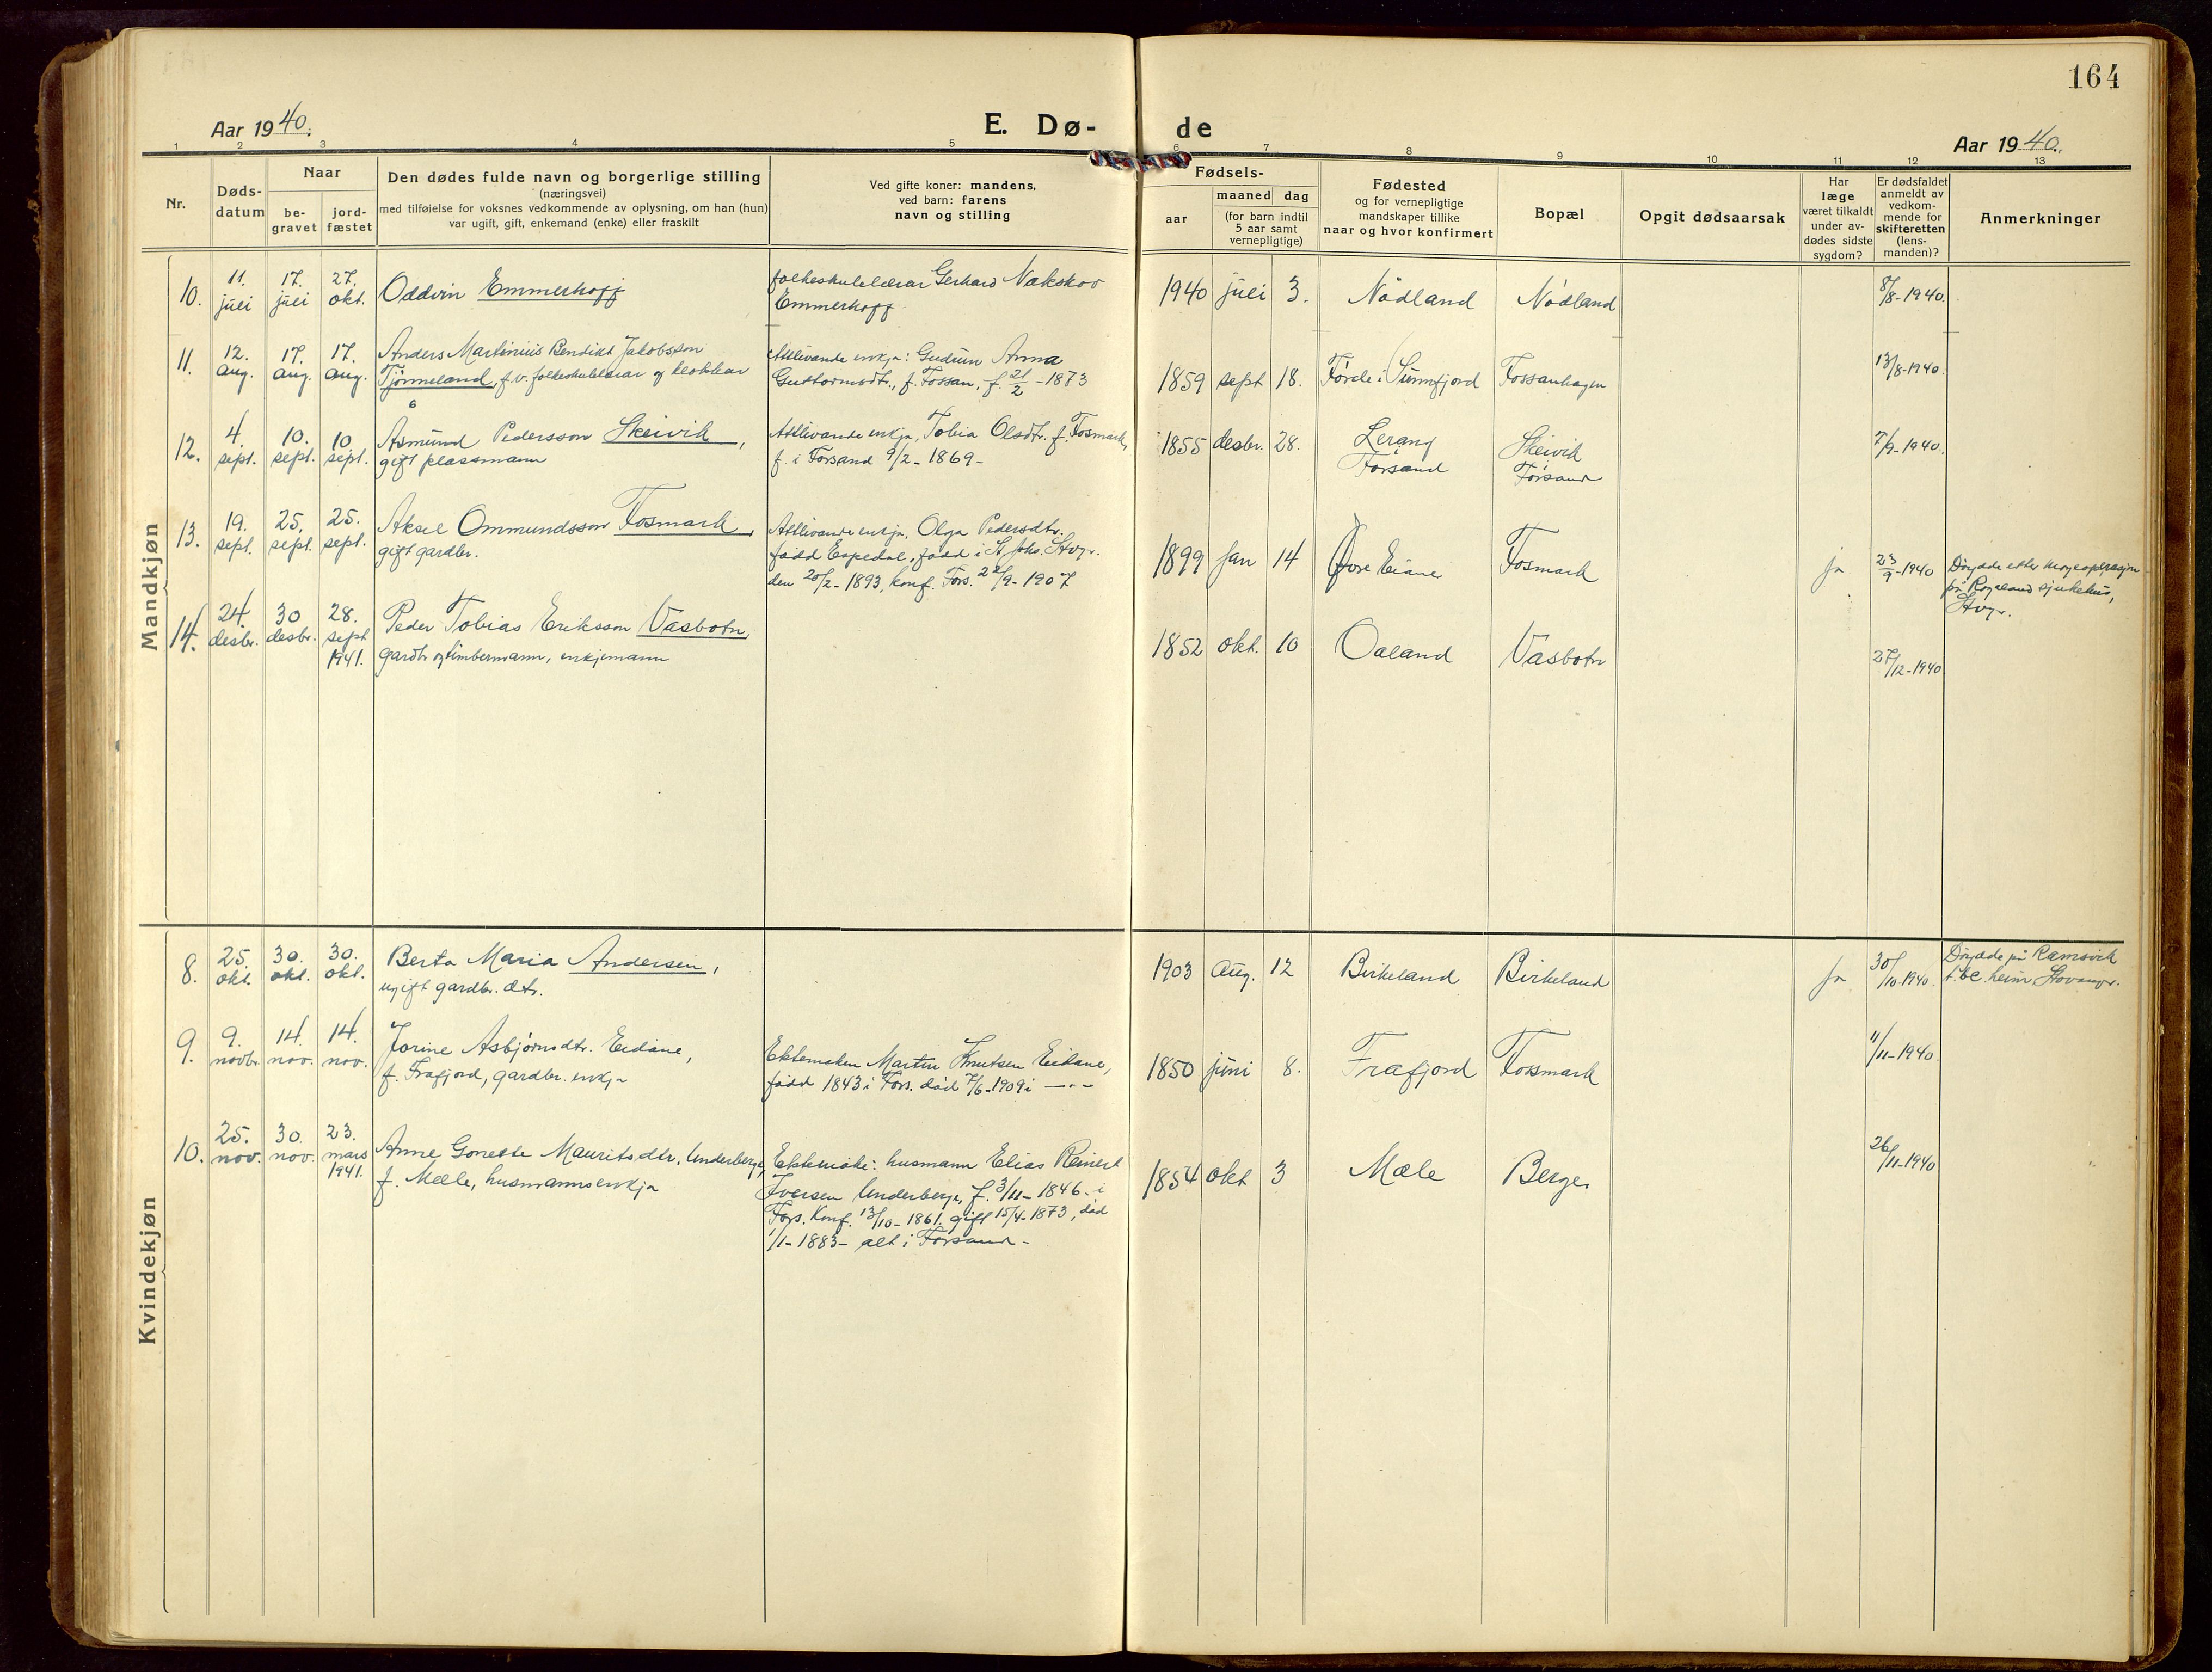 164
Aar 1940.
E. Dø-
de
Aar 1940.
1 2 3 4 5 6 7 8 9 10 11 12 13
Nr.
Døds-
datum
Naar
be-
gravet
jord-
fæstet
Den dødes fulde navn og borgerlige stilling
(næringsvei)
med tilføielse for voksnes vedkommende av oplysning, om han (hun)
var ugift, gift, enkemand (enke) eller fraskilt
Ved gifte koner: mandens,
ved barn: farens
navn og stilling
Fødsels-
aar
maaned dag
(for barn indtil
5 aar samt
vernepligtige)
Fødested
og for vernepligtige
mandskaper tillike
naar og hvor konfirmert
Bopæl
Opgit dødsaarsak
Har
læge
været tilkaldt
under av-
dødes sidste
sygdom?
Er dødsfaldet
anmeldt av
vedkom-
mende for
skifteretten
(lens-
manden)?
Anmerkninger
Mandkjøn
10.
11.
juli
17.
juli
27.
okt.
Oddvin Emmerhoff
folkeskulelærar Gerhard Nakskov
Emmerhoff
1940 juli 3.
Nødland
Nødland
8/8-1940.
11.
12.
aug.
17.
aug.
17.
aug.
Anders Martinius Bendikt Jakobsson
Tjørmeland, f.v. folkeskulelærar og klokkar
Attlivande enkja: Gudrun Anna
Guttormsdtr., f. Fossan, f. 21/2-1873
1859 sept 18.
Førde i Sunnfjord
Fossanhagen
13/8-1940.
12.
4.
sept.
10.
sept.
10
sept.
Asmund Pedersson Skeivik,
gift plassmann
Attlivande enkja, Tobia Olsdtr. f. Fosmark,
f. i Forsand 9/2-1869-
1855 desbr. 28.
Lerang
Forsand
Skeivik
Forsand
7/9-1940.
13.
19.
sept.
25.
sept.
25.
sept.
Aksel Ommundsson Fosmark,
gift gardbr.
Attlivande enkja, Olga Pedersdtr.
fødd Espedal, fødd i St. Joh. Stvgr.
den 20/2-1893, konf. Fors. 22/9-1907
1899 jan 14
Øvre Eiane
Fosmark
ja
23/9-1940
Døydde etter
på Rogaland sjukehus,
Stvgr.
14.
24.
desbr.
30
desbr.
28.
sept
1941.
Peder Tobias Eriksson Vasbotn,
gardbr og timbermann, enkjemann
1852 okt. 10
Oaland
Vasbotn
27/12-1940
Kvindekjøn
8.
25.
okt.
30.
okt.
30.
okt.
Berta Maria Andersen,
ugift gardbr. dtr.
1903 Aug. 12
Birkeland
Birkeland
ja
30/10-1940.
Døydde på Ramsvik
t.bc. heim Stavanger.
9.
9.
novbr.
14.
nov.
14.
nov.
Jorine Asbjørnsdtr. Eidane,
f. Frafjord, gardbr. enkja
Ektemaken Martin Knutsen Eidane,
fødd 1843 i Fors. død 7/6-1909 i —"—
1850 juni 8.
Frafjord
Fossmark
11/11-1940.
10.
25.
nov.
30.
nov.
23.
mars
1941.
Anne Gonette Mauritsdtr. Underberge,
f. Mæle, husmannsenkja
Ektemake: husmann Elias Reinert
Iversen Underberge, f. 3/11-1846- i
Fors. Konf. 13/10-1861. gift 15/4-1873, død
1/1-1883- alt i Forsand -
1854 okt 3
Mæle
Berge
26/11-1940